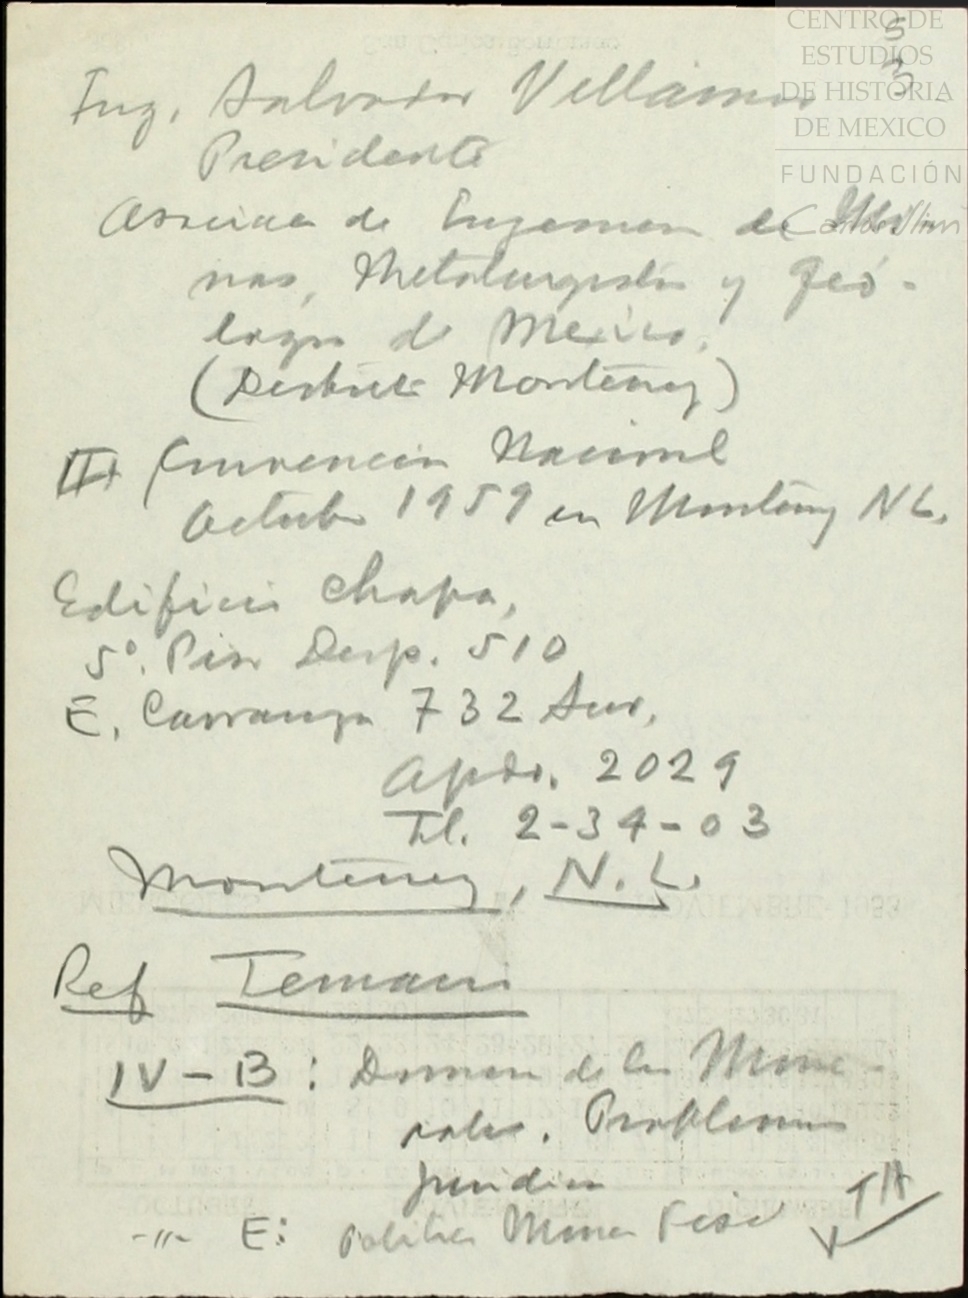 CENTRO DE
ESTUDIOS
DE HISTORIA
DE MEXICO
FUNDACIÓN
53
Ing. Salvador Villamar
Presidente
de Ingenieros de Mi
nas, Metalurgistas y Geó-
logos de México,
(Distrito Monterrey)
III Convención Nacional
Octubre 1959 en Monterrey N L.
Edificio Chapa,
5º. Piso Desp. 510
E. Carranza 732 Sur,
Apdo. 2029
Tl. 2-34-03
Monterrey, N. L.
Ref Temario
IV-B: de los Mine-
rales. Problemas
Jurídicos
-"- E: Política Minera Fiscal